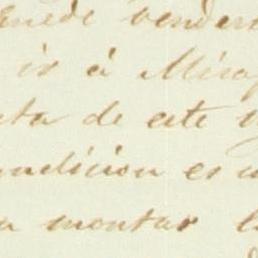 Puede vender
ir á Mira
ta de este v
ondicion es u
a montar l